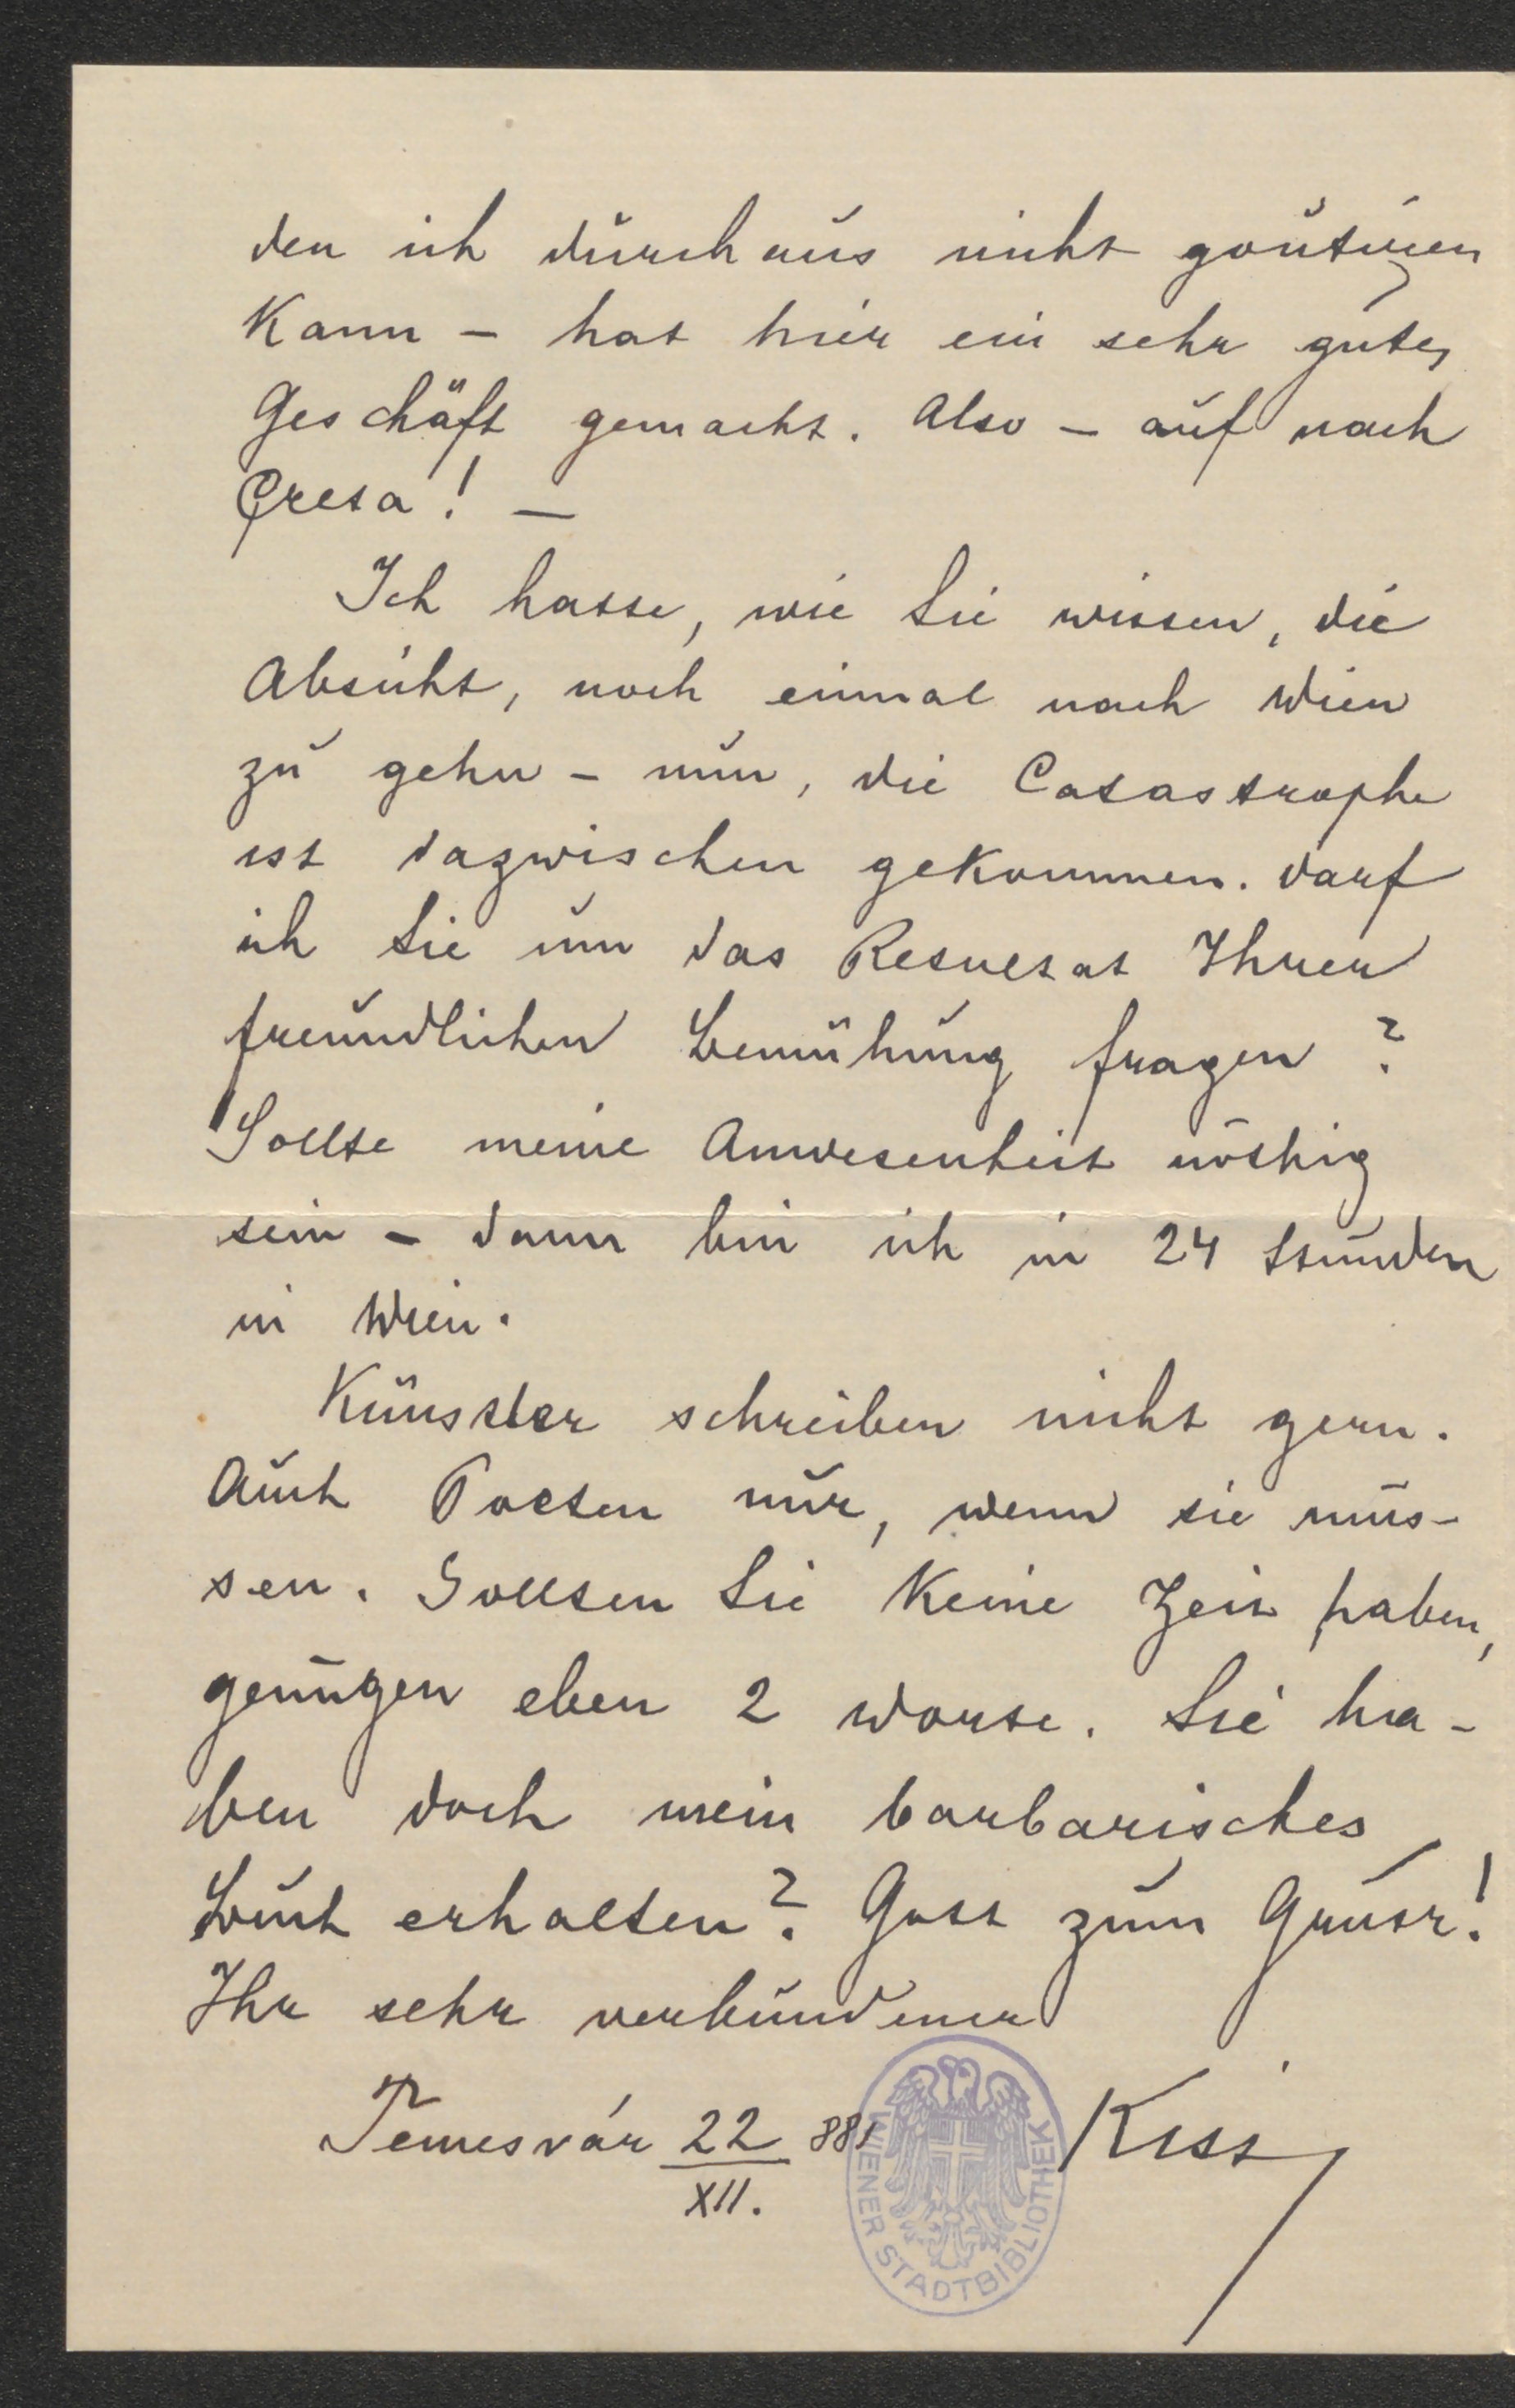 den ich durchaus nicht goutiren
kann – hat hier ein sehr gutes
Geschäft gemacht. Also – auf nach
Creta! –
Ich hatte, wie Sie wissen, die
Absicht, noch einmal nach Wien
zu gehn – nun, die Catastrophe
ist dazwischen gekommen. Darf
ich Sie um das Resultat Ihrer
freundlichen Bemühung fragen?
Sollte meine Anwesenheit nöthig
sein – dann bin ich in 24 Stunden
in Wien.
Künstler schreiben nicht gern.
Auch Poeten nur, wenn sie müs-
sen. Sollten Sie keine Zeit haben,
genügen eben 2 Worte. Sie ha-
ben doch mein barbarisches
Buch erhalten? Gott zum Gruss!
Ihr sehr verbundener
Temesvár 22 881 Kiss
XII.
WIENER STADTBIBLIOTHEK